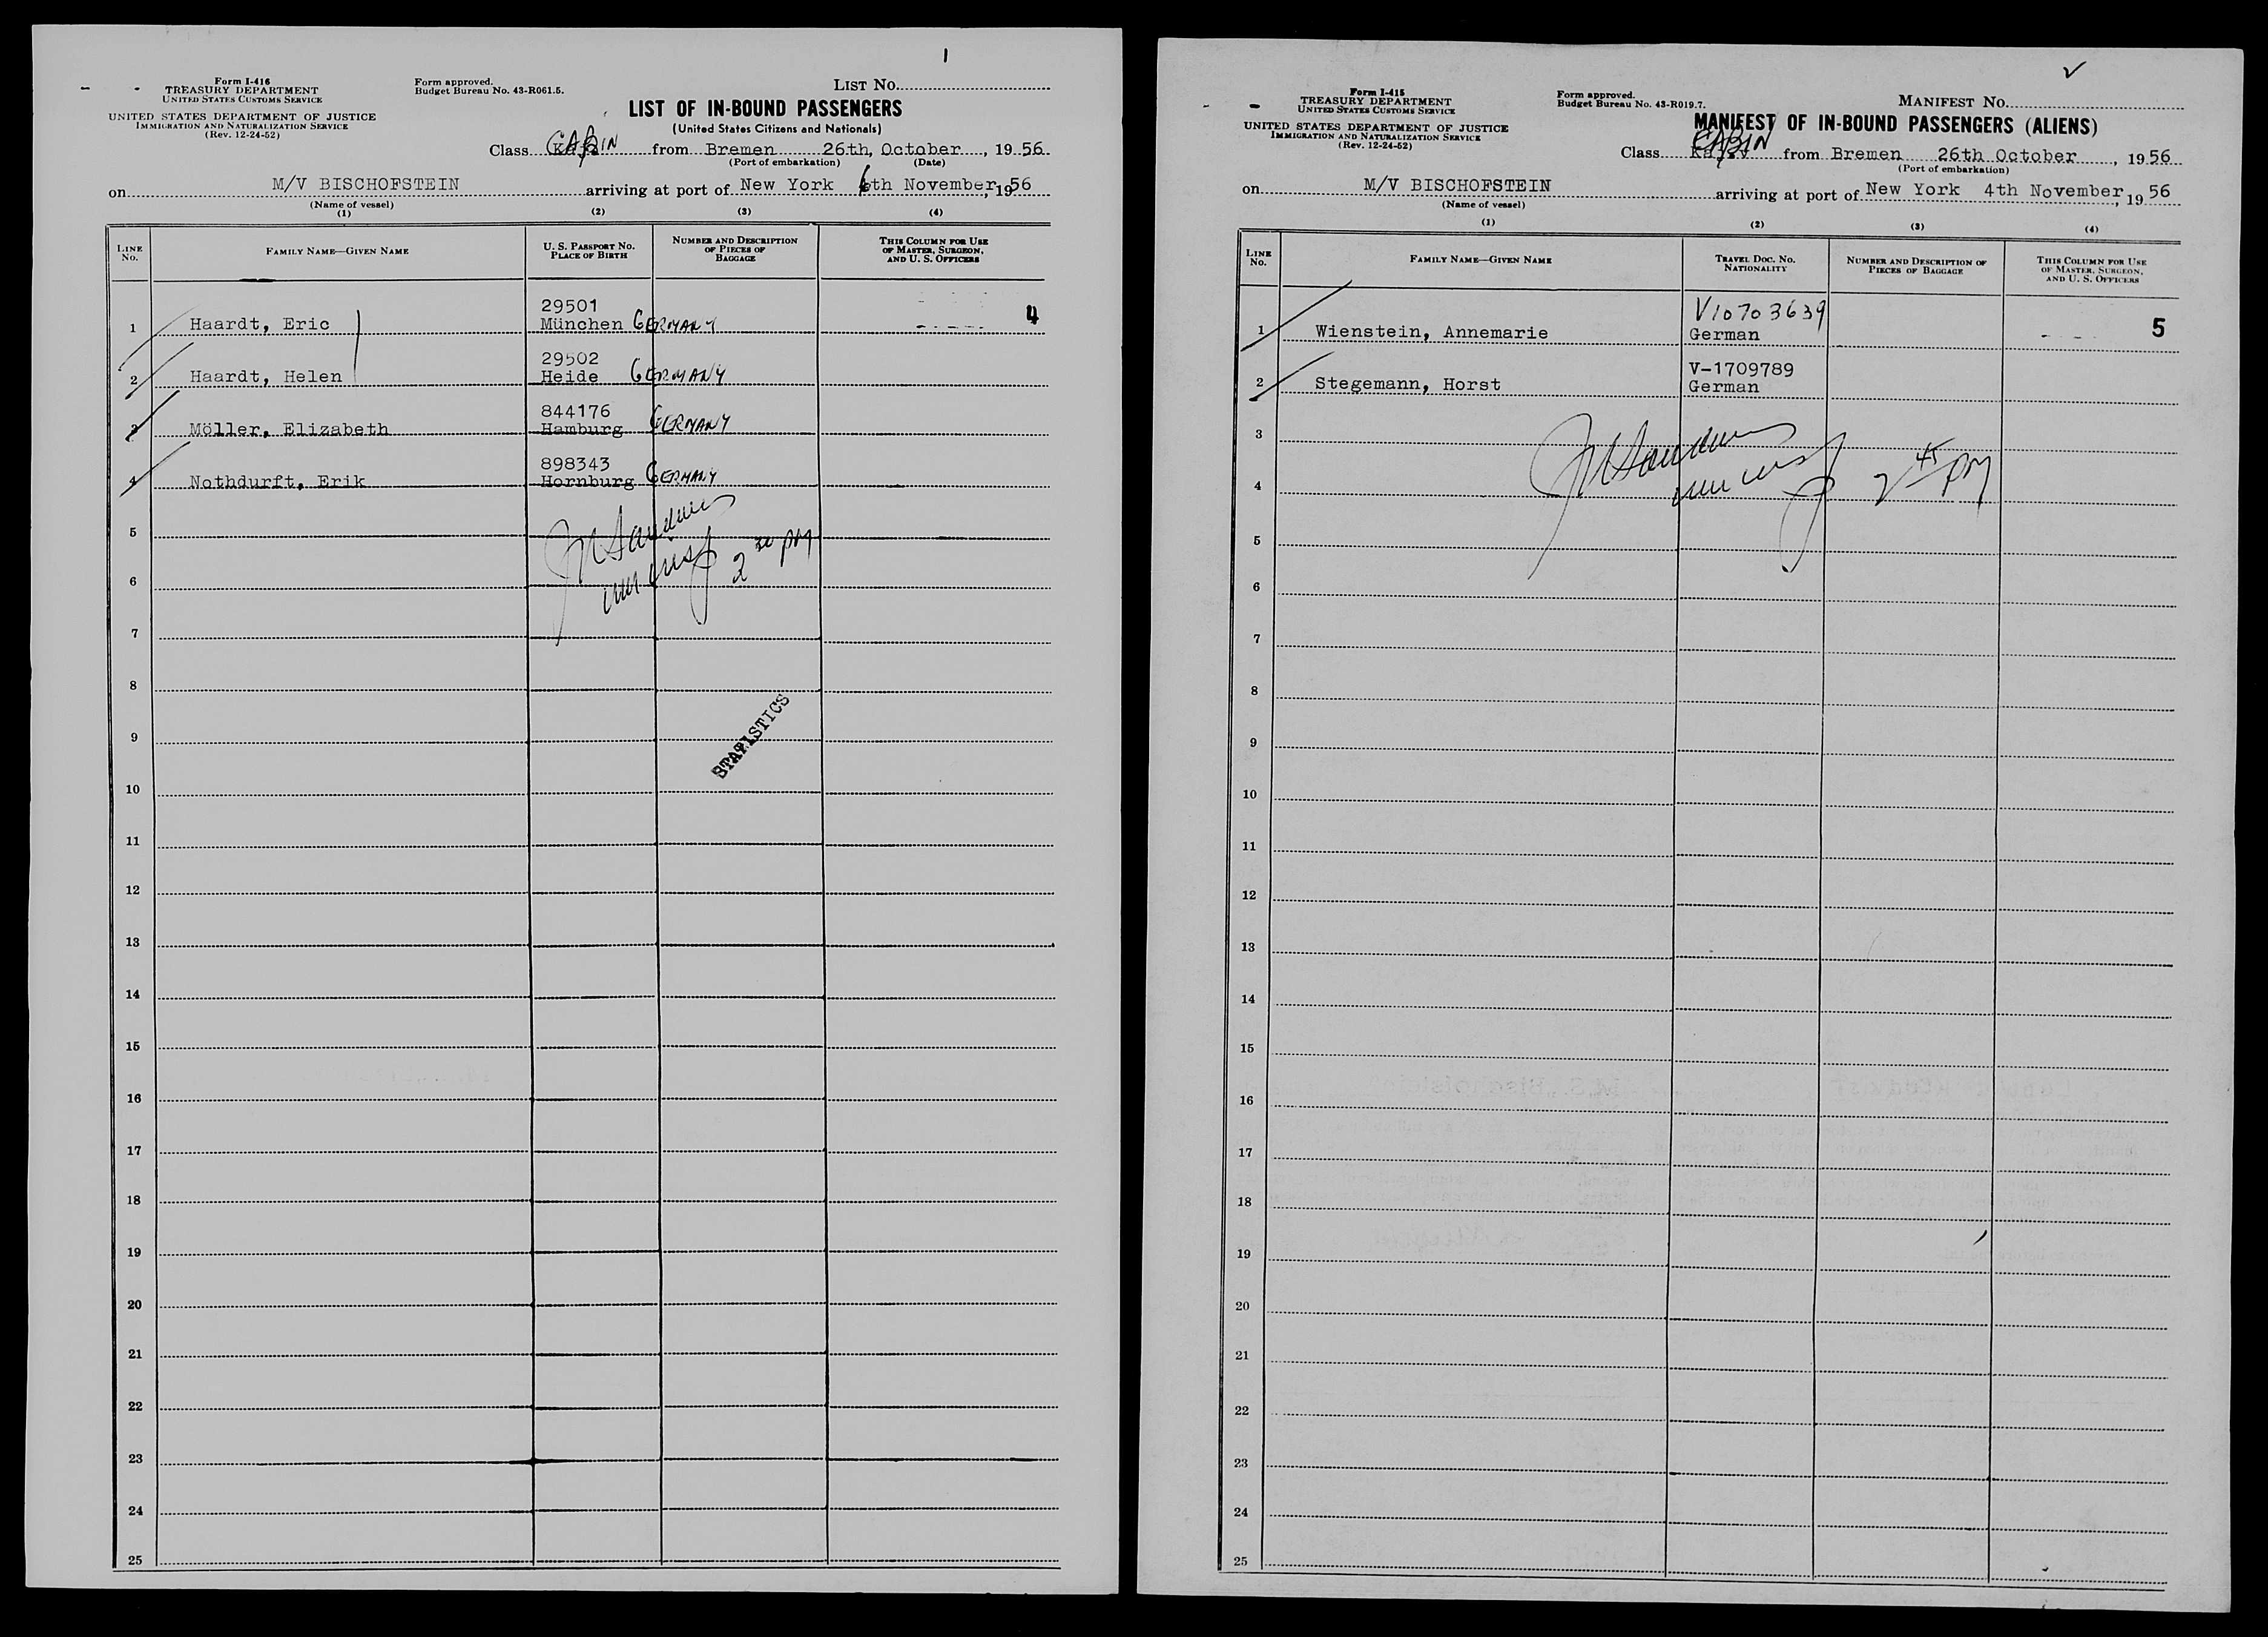 1
Form I-416
TREASURY DEPARTMENT
UNITED STATES CUSTOMS SERVICE
UNITED STATES DEPARTMENT OF JUSTICE
IMMIGRATION AND NATURALIZATION SERVICE
(Rev. 12-24-52)
Form approved.
Budget Bureau No. 43-R061.5.
LIST NO.
LIST OF IN-BOUND PASSENGERS
(United States Citizens and Nationals)
Class CABIN from Bremen 26th, October, 1956
(Port of embarkation) (Date)
on M/V BISCHOFSTEIN arriving at port of New York 6th November, 1956
(Name of vessel)
(1) (2) (3) (4)
LINE No. FAMILY NAME—GIVEN NAME U. S. PASSPORT NO. PLACE OF BIRTH NUMBER AND DESCRIPTION OF PIECES OF BAGGAGE THIS COLUMN FOR USE OF MASTER, SURGEON, AND U. S. OFFICERS
29501 4
1 Haardt, Eric München GERMANY
29502
2 Haardt, Helen Heide GERMANY
844176
3 Möller, Elizabeth Hamburg GERMANY
898343
4 Nothdurft, Erik Hornburg GERMANY
5
2 30 PM
6
7
8
STATISTICS
9
10
11
12
13
14
15
16
17
18
19
20
21
22
23
24
25
Form I-415
TREASURY DEPARTMENT
UNITED STATES CUSTOMS SERVICE
UNITED STATES DEPARTMENT OF JUSTICE
IMMIGRATION AND NATURALIZATION SERVICE
(Rev. 12-24-52)
Form approved.
Budget Bureau No. 43-R019.7.
MANIFEST NO.
MANIFEST OF IN-BOUND PASSENGERS (ALIENS)
Class CABIN from Bremen 26th October, 1956
(Port of embarkation)
on M/V BISCHOFSTEIN arriving at port of New York 4th November, 1956
(Name of vessel)
(1) (2) (3) (4)
LINE No. FAMILY NAME—GIVEN NAME TRAVEL DOC. NO. NATIONALITY NUMBER AND DESCRIPTION OF PIECES OF BAGGAGE THIS COLUMN FOR USE OF MASTER, SURGEON, AND U. S. OFFICERS
V10703639
1 Wienstein, Annemarie German 5
V-1709789
2 Stegemann, Horst German
3
2 45 PM
4
5
6
7
8
9
10
11
12
13
14
15
16
17
18
19
20
21
22
23
24
25